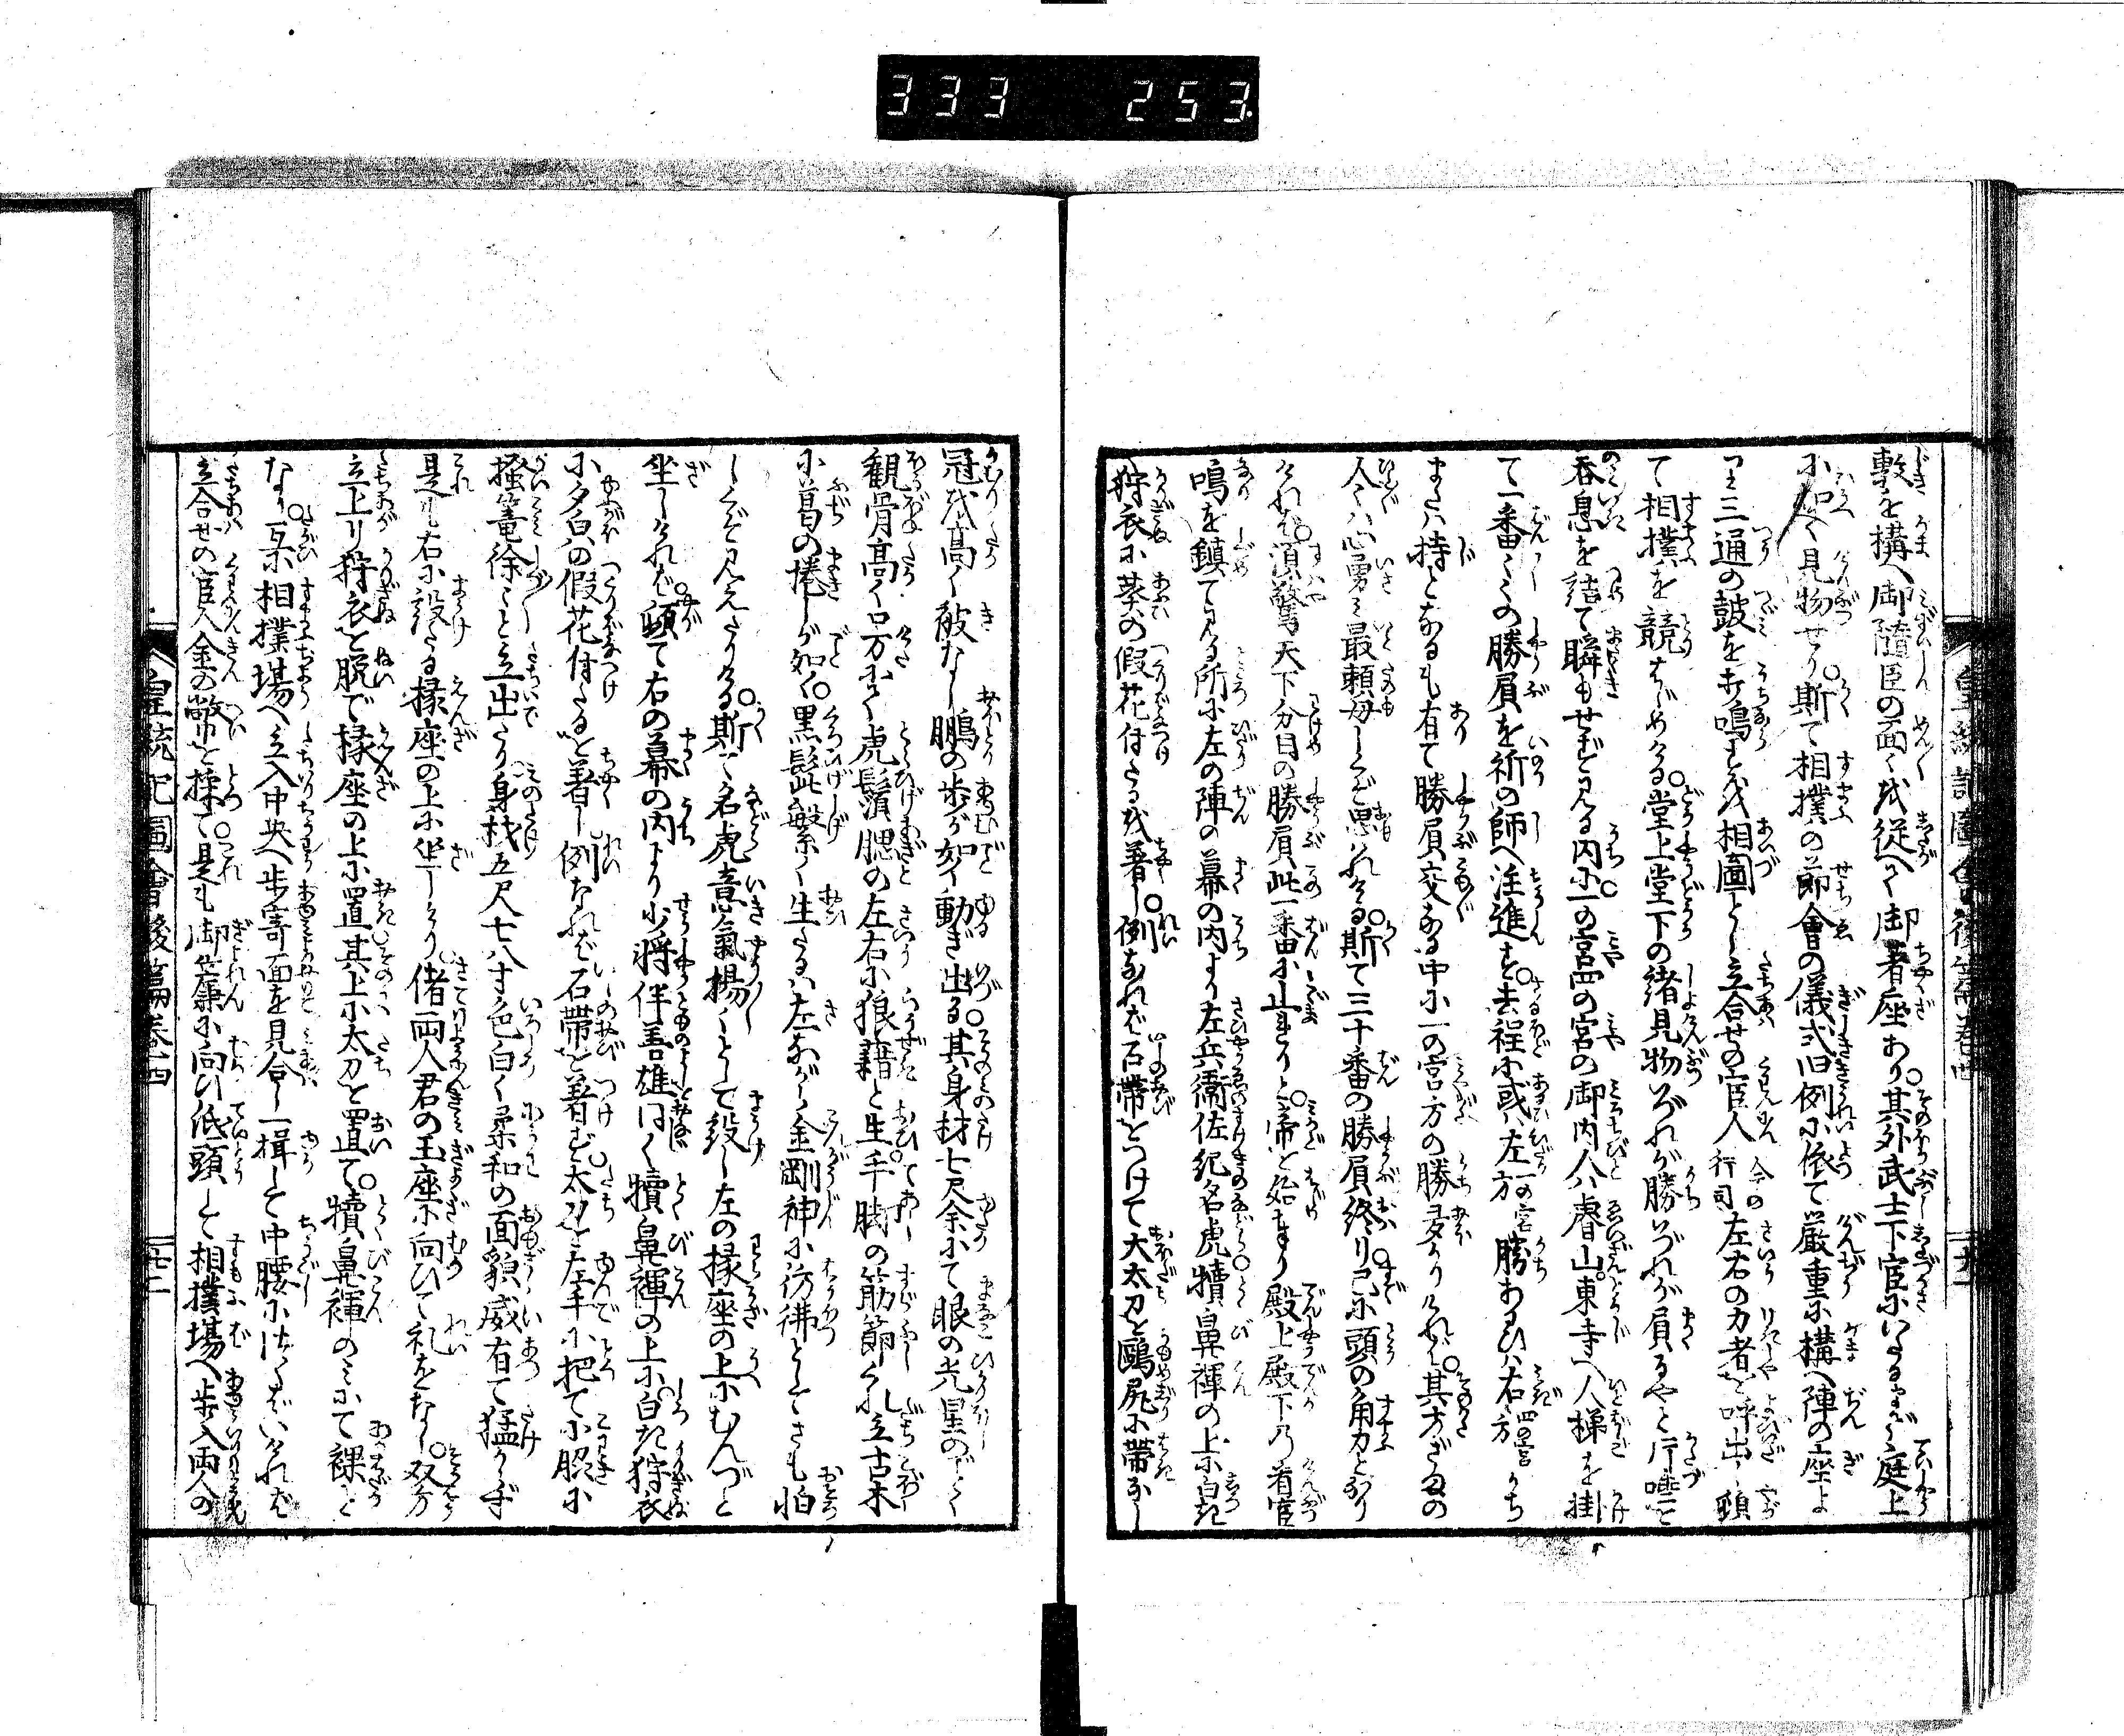 333 253
皇統記圖會後篇巻四
敷を構へ御隨臣の面〻を従へて御着座あり其外武士下官にいたるまで庭上
に如て見物せり斯て相撲の節會の儀式旧例に依て厳重に構へ陣の座よ
り三通の皷を打鳴すを相圖とし立合せの官人 今の行司 左右の力者を呼出し頓
て相撲を競はじめける堂上堂下の緒見物いづれが勝いづれが負るやと片唾を
呑息を詰て瞬もせず見る内に一の宮四の宮の御内人ハ睿山東寺へ人梯を掛
て一番〳〵の勝負を祈の師へ注進す去程に或ハ左方 一の宮 勝あるひハ右方 四の宮
または持となるも有て勝負交なる中に一の宮方の勝多かりければ其方ざまの
人〻ハ心勇ミ最頼母しくぞ思ハれける斯て三十番の勝負終り已に頭の角力となり
ければ須驚天下分目の勝負此一番に止まりと帝を始まり殿上殿下の看官
鳴を鎮て見る所に左の陣の幕の内より左兵衛佐紀名虎犢鼻褌の上に白き
狩衣に葵の假花付たるを着し例なれば石帯をつけて大太刀を鷗尻に帯なし
冠を高く被なし鵬の歩が如く動ぎ出る其身材七尺余にて眼の光星のごとく
觀骨高く口方にて虎鬚腮の左右に狼藉と生手脚の筋節くれ立古木
に葛の捲しが如く黒髭毿繁く生たるハ左ながら金剛神に彷彿としてさも怕
しくぞ見えたりける斯て名虎意氣揚〻として設し左の椽座の上にむんづと
坐しければ頓て右の幕の内より少将伴善雄同く犢鼻褌の上に白き狩衣
に夕白の假花付たるを着し例なれば石帯を着ず太刀を左手に把て小脇に
掻篭徐〻と立出たり身材五尺七八寸色白く柔和の面貌威有て猛からず
是も右に設たる椽座の上に坐しけり偖両人君の玉座に向ひて礼をなし双方
立上り狩衣を脱で椽座の上に置其上に太刀を置て犢鼻褌のミにて裸と
なり互に相撲場へ立入中央へ歩寄面を見合し一揖して中腰に
立合せの官人金の幣を採て是も御簾に向ひ低頭して相撲場へ歩入両人の
皇統記圖會後篇巻四 廿二